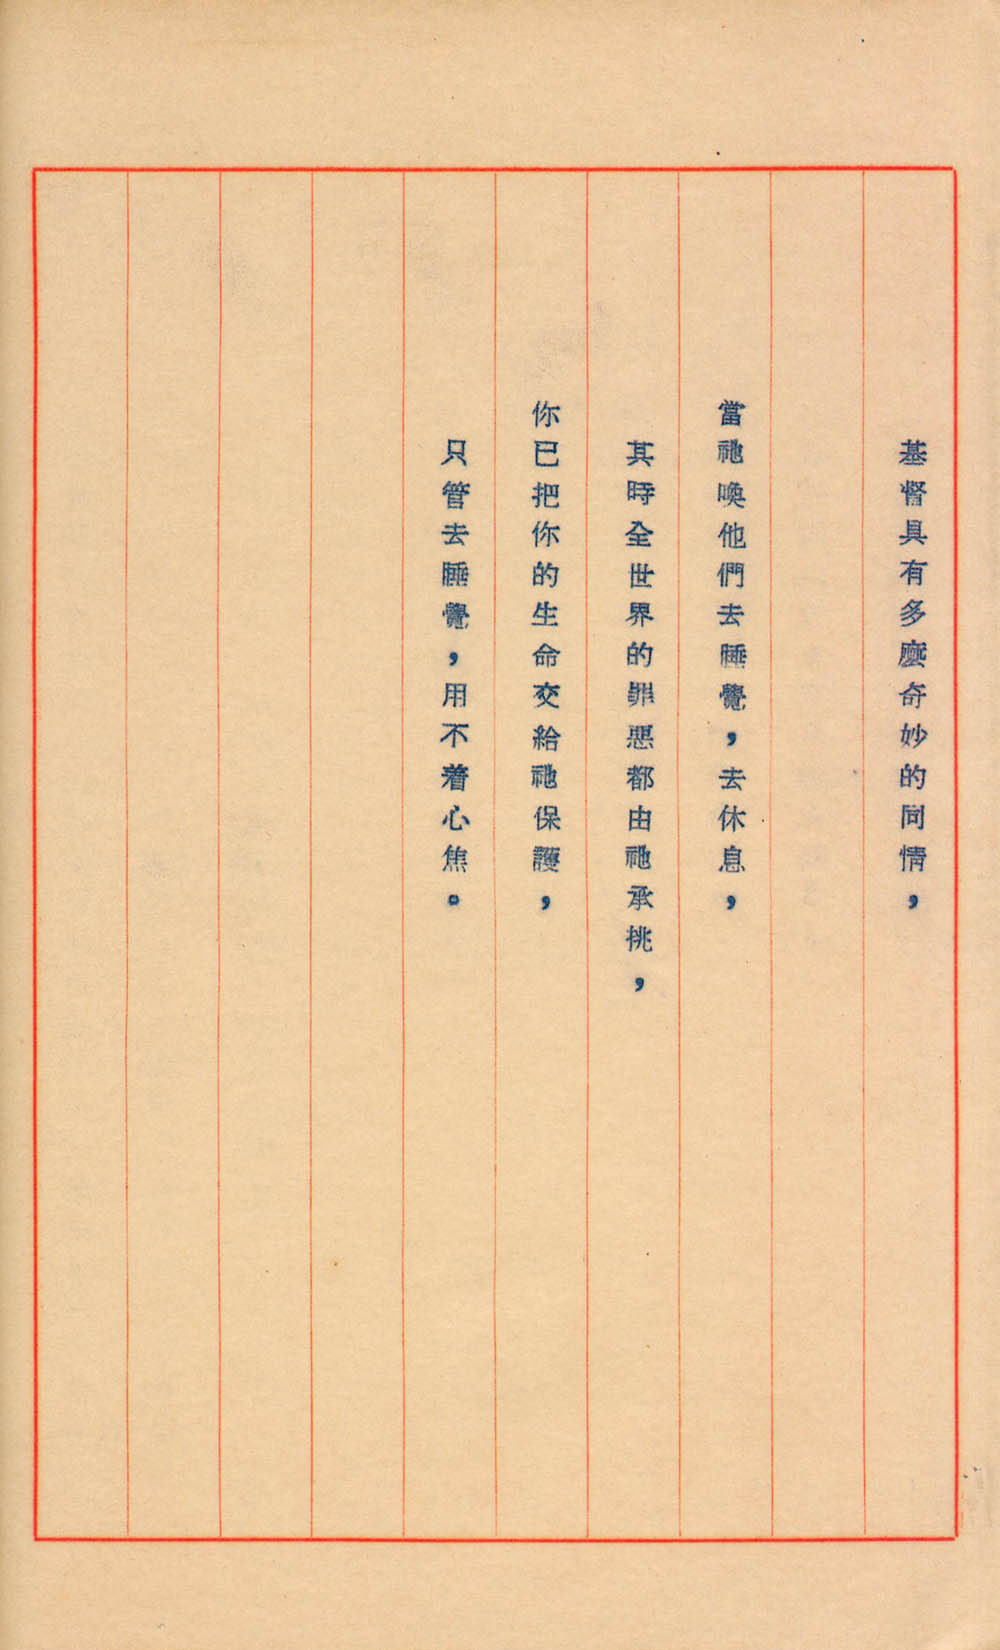 基督具有多麼奇妙的同情，
當祂喚他們去睡覺，去休息，
其時全世界的罪惡都由祂承挑，
你已把你的生命交給祂保護，
只管去睡覺，用不着心焦。